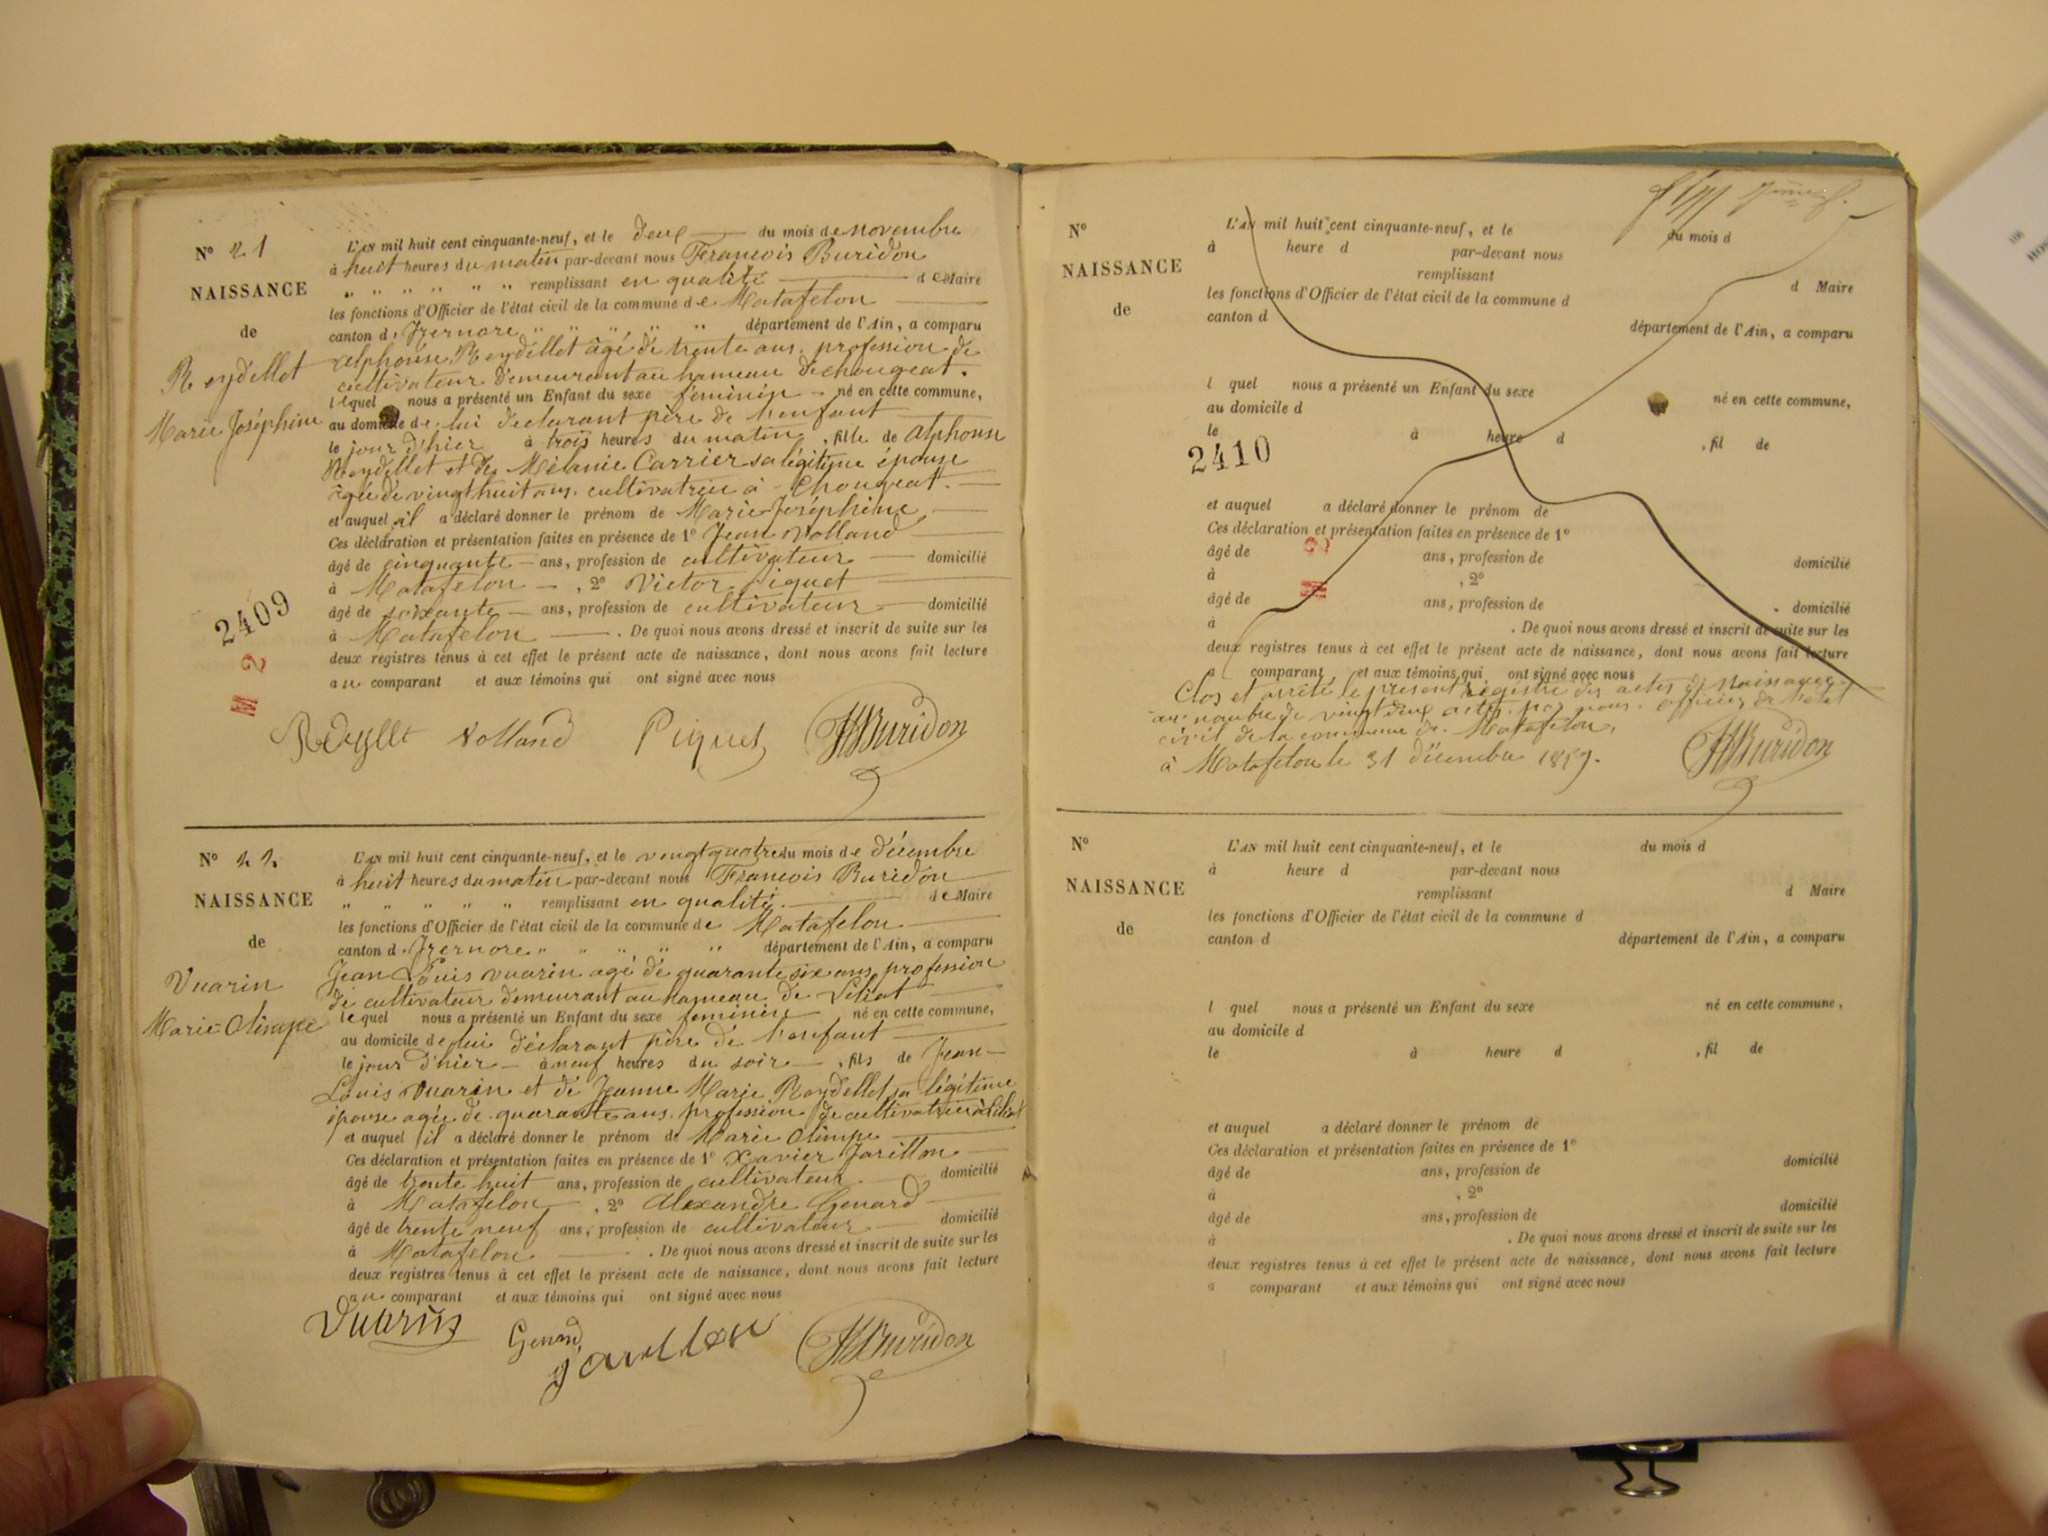 N° 21
NAISSANCE
de
Reydellet
Marie Joséphine
L'AN mil huit cent cinquante-neuf, et le deux du mois de novembre
à huit heures du matin par-devant nous François Buridon
" " " " " " remplissant en qualité de Maire
les fonctions d'Officier de l'état civil de la commune de Matafelon
canton d. Izernore " " " " " département de l'Ain, a comparu
alphonse Reydellet âgé de trente ans. profession de
cultivateur demeurant au hameau de chougeat.
lequel nous a présenté un Enfant du sexe féminin né en cette commune,
au domicile de lui déclarant père de l'enfant
le jour d'hier à trois heures du matin, fille de alphonse
Reydellet et de Mélanie Carrier sa légitime épouse
agée de vingt huit ans. cultivatrice à Chougeat.
et auquel il a déclaré donner le prénom de Marie Joséphine
Ces déclaration et présentation faites en présence de 1° Jean Volland
âgé de cinquante ans, profession de cultivateur domicilié
à Matafelon, 2° Victor Piquet
âgé de soixante ans, profession de cultivateur domicilié
à Matafelon. De quoi nous avons dressé et inscrit de suite sur les
deux registres tenus à cet effet le présent acte de naissance, dont nous avons fait lecture
au comparant et aux témoins qui ont signé avec nous
2409
M 2
Volland Piquet Buridon
N° 22
NAISSANCE
de
Vuarin
Marie-Olimpe
L'AN mil huit cent cinquante-neuf, et le vingt quatre du mois de décembre
à huit heures du matin par-devant nous François Buridon
" " " " " remplissant en qualité de Maire
les fonctions d'Officier de l'état civil de la commune de Matafelon
canton d. Izernore " " " " " département de l'Ain, a comparu
Jean Louis vuarin agé de quarante six ans profession
de cultivateur demeurant au hameau de
lequel nous a présenté un Enfant du sexe feminin né en cette commune,
au domicile de lui déclarant père de l'enfant
le jour d'hier à neuf heures du soir, fils de Jean
Louis vuarin et de Jeanne Marie Reydellet sa légitime
épouse agée de quarante ans. profession de cultivatrice à
et auquel il a déclaré donner le prénom de Marie Olimpe
Ces déclaration et présentation faites en présence de 1° Xavier Jarillon
âgé de trente huit ans, profession de cultivateur domicilié
à Matafelon, 2° Alexandre Genard
âgé de trente neuf ans, profession de cultivateur domicilié
à Matafelon. De quoi nous avons dressé et inscrit de suite sur les
deux registres tenus à cet effet le présent acte de naissance, dont nous avons fait lecture
au comparant et aux témoins qui ont signé avec nous
Vuarin Genard Buridon
N°
NAISSANCE
de
L'AN mil huit cent cinquante-neuf, et le du mois d
à heure d par-devant nous
remplissant d Maire
les fonctions d'Officier de l'état civil de la commune d
canton d département de l'Ain, a comparu
l quel nous a présenté un Enfant du sexe né en cette commune,
au domicile d
le à heure d , fil de
2410
et auquel a déclaré donner le prénom de
Ces déclaration et présentation faites en présence de 1°
âgé de ans, profession de domicilié
à , 2°
âgé de ans, profession de domicilié
à . De quoi nous avons dressé et inscrit de suite sur les
deux registres tenus à cet effet le présent acte de naissance, dont nous avons fait lecture
a comparant et aux témoins qui ont signé avec nous
M 2
Clos et arrêté le present registre des actes de Naissances
au nombre de vingt deux actes par nous officier de l'etat
civil de la commune de Matafelon,
à Matafelon le 31 décembre 1859.
Buridon
N°
NAISSANCE
de
L'AN mil huit cent cinquante-neuf, et le du mois d
à heure d par-devant nous
remplissant d Maire
les fonctions d'Officier de l'état civil de la commune d
canton d département de l'Ain, a comparu
l quel nous a présenté un Enfant du sexe né en cette commune,
au domicile d
le à heure d , fil de
et auquel a déclaré donner le prénom de
Ces déclaration et présentation faites en présence de 1°
âgé de ans, profession de domicilié
à , 2°
âgé de ans, profession de domicilié
à . De quoi nous avons dressé et inscrit de suite sur les
deux registres tenus à cet effet le présent acte de naissance, dont nous avons fait lecture
a comparant et aux témoins qui ont signé avec nous